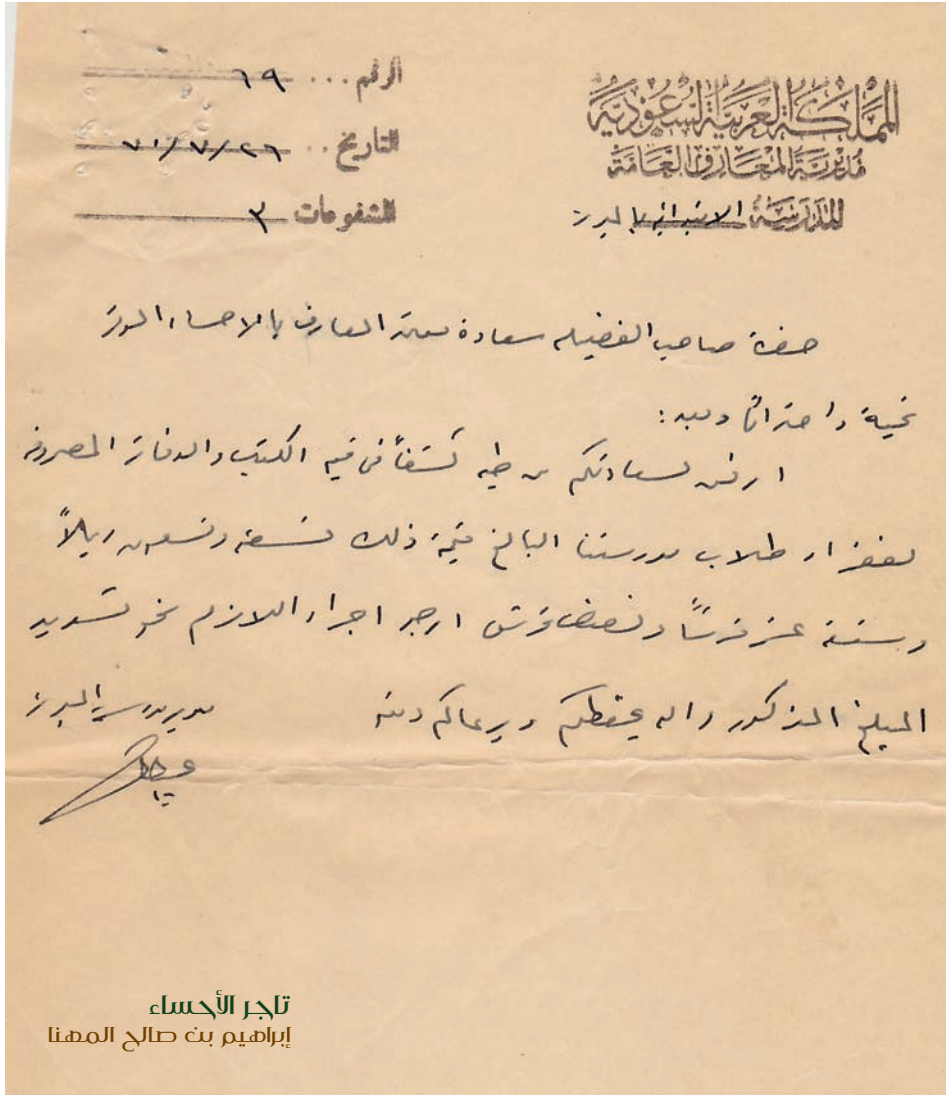 المملكة العربية السعودية
مديرية المعارف العامة
المدرسة الابتدائية بالمبرز
الرقم ... ٦٩
التاريخ .. ٢٦/٧/٧٠
المشفوعات ٣
حضرة صاحب الفضيلة سعادة معتمد المعارف بالاحساء الموقر
تحية واحتراماً وبعد :
ارفق لسعادتكم من طيه كشفاً في قيم الكتب والدفاتر المصروفة
لفقراء طلاب مدرستنا البالغ قيمة ذلك تسعة وتسعون ريالاً
وستة عشر قرشاً ونصف قرش ارجو اجراء اللازم نحو تسديد
المبلغ المذكور والله يحفظكم ويرعاكم
مدير مدرسة المبرز
تاجر الأحساء
إبراهيم بن صالح المهنا